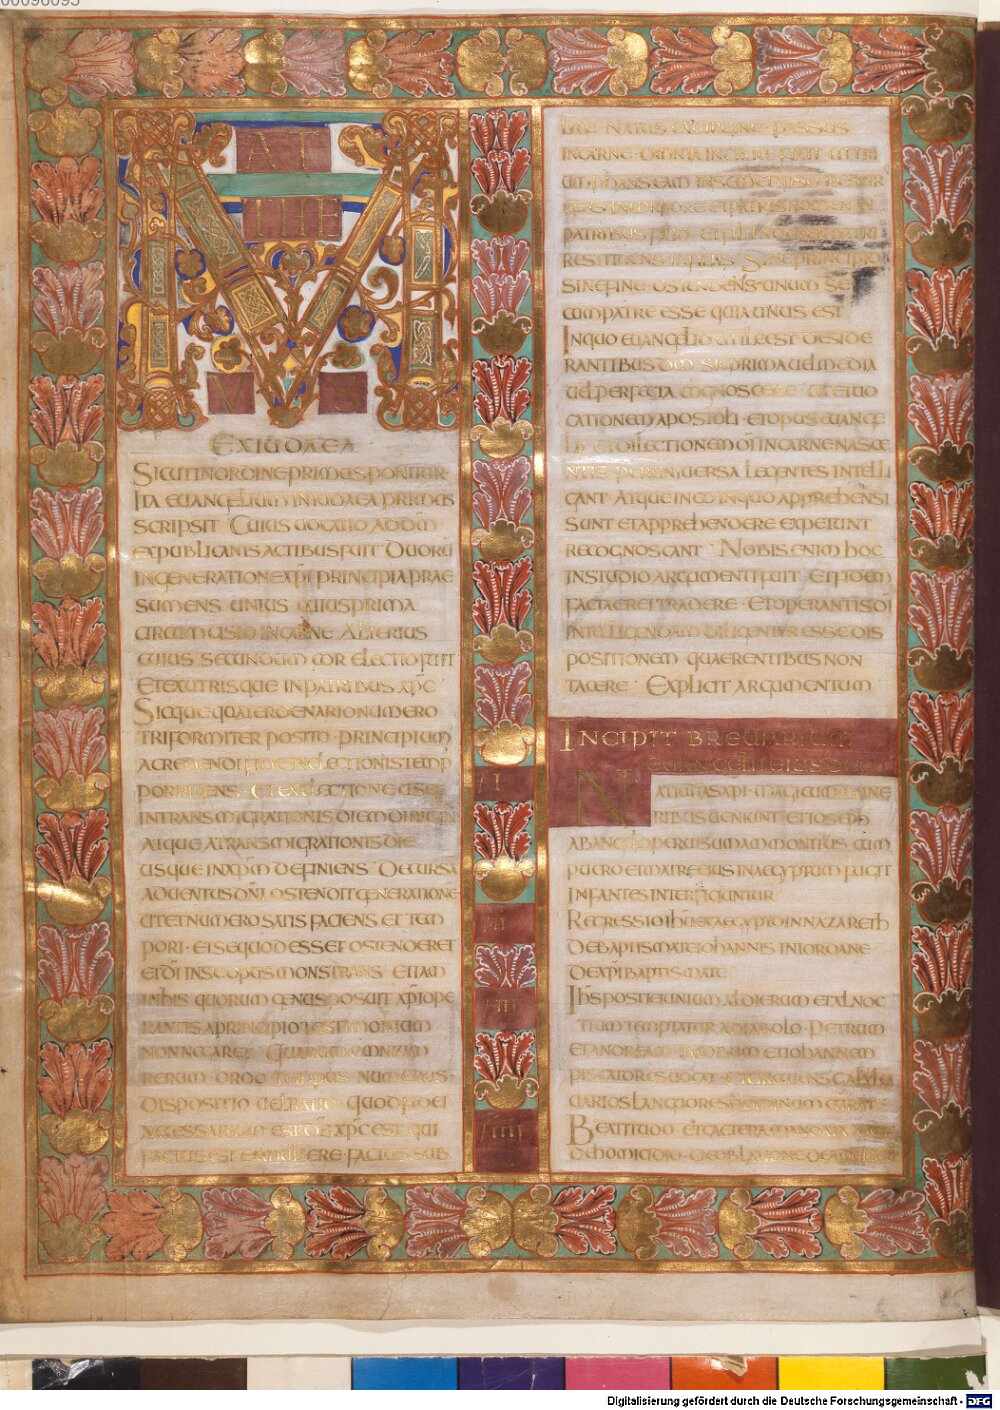 00096095
MAT
THE
VS
EX IUDAEA
SICUT IN ORDINE PRIMUS PONITUR
ITA EUANGELIUM IN IUDAEA PRIMUS
SCRIPSIT CUIUS UOCATIO AD DM
EX PUBLICANIS ACTIBUS FUIT DUORU
IN GENERATIONE XPI PRINCIPIA PRAE
SUMENS UNIUS CUIUS PRIMA
CIRCUMCISIO IN CARNE ALTERIUS
CUIUS SECUNDUM COR ELECTIO FUIT
ET EX UTRISQUE IN PATRIBUS XPC
SICQUE QUATERDENARIO NUMERO
TRIFORMITER POSITO PRINCIPIUM
A CREDENDI FIDE IN ELECTIONIS TEMP
PORRIGENS ET EX ELECTIONE USQ
IN TRANSMIGRATIONIS DIEM DIRIGENS
ATQUE A TRANSMIGRATIONIS DIE
USQUE IN XPM DEFINIENS DECURSA
ADUENTUS DNI OSTENDIT GENERATIONE
UT ET NUMERO SATIS FACIENS ET TEM
PORI ET SE QUOD ESSET OSTENDERET
ET DI IN SE OPUS MONSTRANS ETIAM
IN HIS QUORUM GENUS POSUIT XPI OPE
RANTIS A PRINCIPIO TESTIMONIUM
NON NEGARET QUARUM OMNIUM
RERUM ORDO TEMPUS NUMERUS
DISPOSITIO UEL RATIO QUOD FIDEI
NECESSARIUM EST DS XPC EST QUI
FACTUS EST EX MULIERE FACTUS SUB
LEGE NATUS EX UIRGINE PASSUS
IN CARNE OMNIA IN CRUCE FIXIT UT TRI
UMPHANS EAM IN SEMETIPSO RESUR
GENS IN CORPORE ET PATRIS NOMEN IN
PATRIBUS FILIO ET FILII NOMEN PATRI
RESTITUENS IN FILIIS SINE PRINCIPIO
SINE FINE OSTENDENS UNUM SE
CUM PATRE ESSE QUIA UNUS EST
IN QUO EUANGELIO UTILE EST DESIDE
RANTIBUS DM SIC PRIMA UEL MEDIA
UEL PERFECTA COGNOSCERE UT ET UO
CATIONEM APOSTOLI ET OPUS EUANGE
LII ET DILECTIONEM DI IN CARNE NASCE
NTIS PER UNIUERSA LEGENTES INTELLI
GANT ATQUE IN EO IN QUO APPREHENSI
SUNT ET APPREHENDERE EXPETUNT
RECOGNOSCANT NOBIS ENIM HOC
IN STUDIO ARGUMENTI FUIT ET FIDEM
FACTAE REI TRADERE ET OPERANTIS DI
INTELLIGENDAM DILIGENTER ESSE DIS
POSITIONEM QUAERENTIBUS NON
TACERE EXPLICIT ARGUMENTUM
INCIPIT BREUIARIUM
EUANGELII EIUSDEM
I
NATIUITAS XPI MAGI CUM MUNE
RIBUS UENIUNT ET IOSEPH
AB ANGELO PER UISUM AMMONITUS CUM
PUERO ET MATRE EIUS IN AEGYPTUM FUGIT
INFANTES INTERFICIUNTUR
II
REGRESSIO IHU EX AEGYPTO IN NAZARETH
DE BAPTISMATE IOHANNIS IN IORDANE
DE XPI BAPTISMATE
III
IHS POST IEIUNIUM XL DIERUM ET XL NOC
TIUM TEMPTATUR A DIABOLO PETRUM
ET ANDREAM IACOBUM ET IOHANNEM
PISCATORES UOCAT
UARIOS LANGUORES HOMINUM CURAT
IIII
BEATITUDO ET CAETERA MANDATA
DE HOMICIDIO
Digitalisierung gefördert durch die Deutsche Forschungsgemeinschaft - DFG